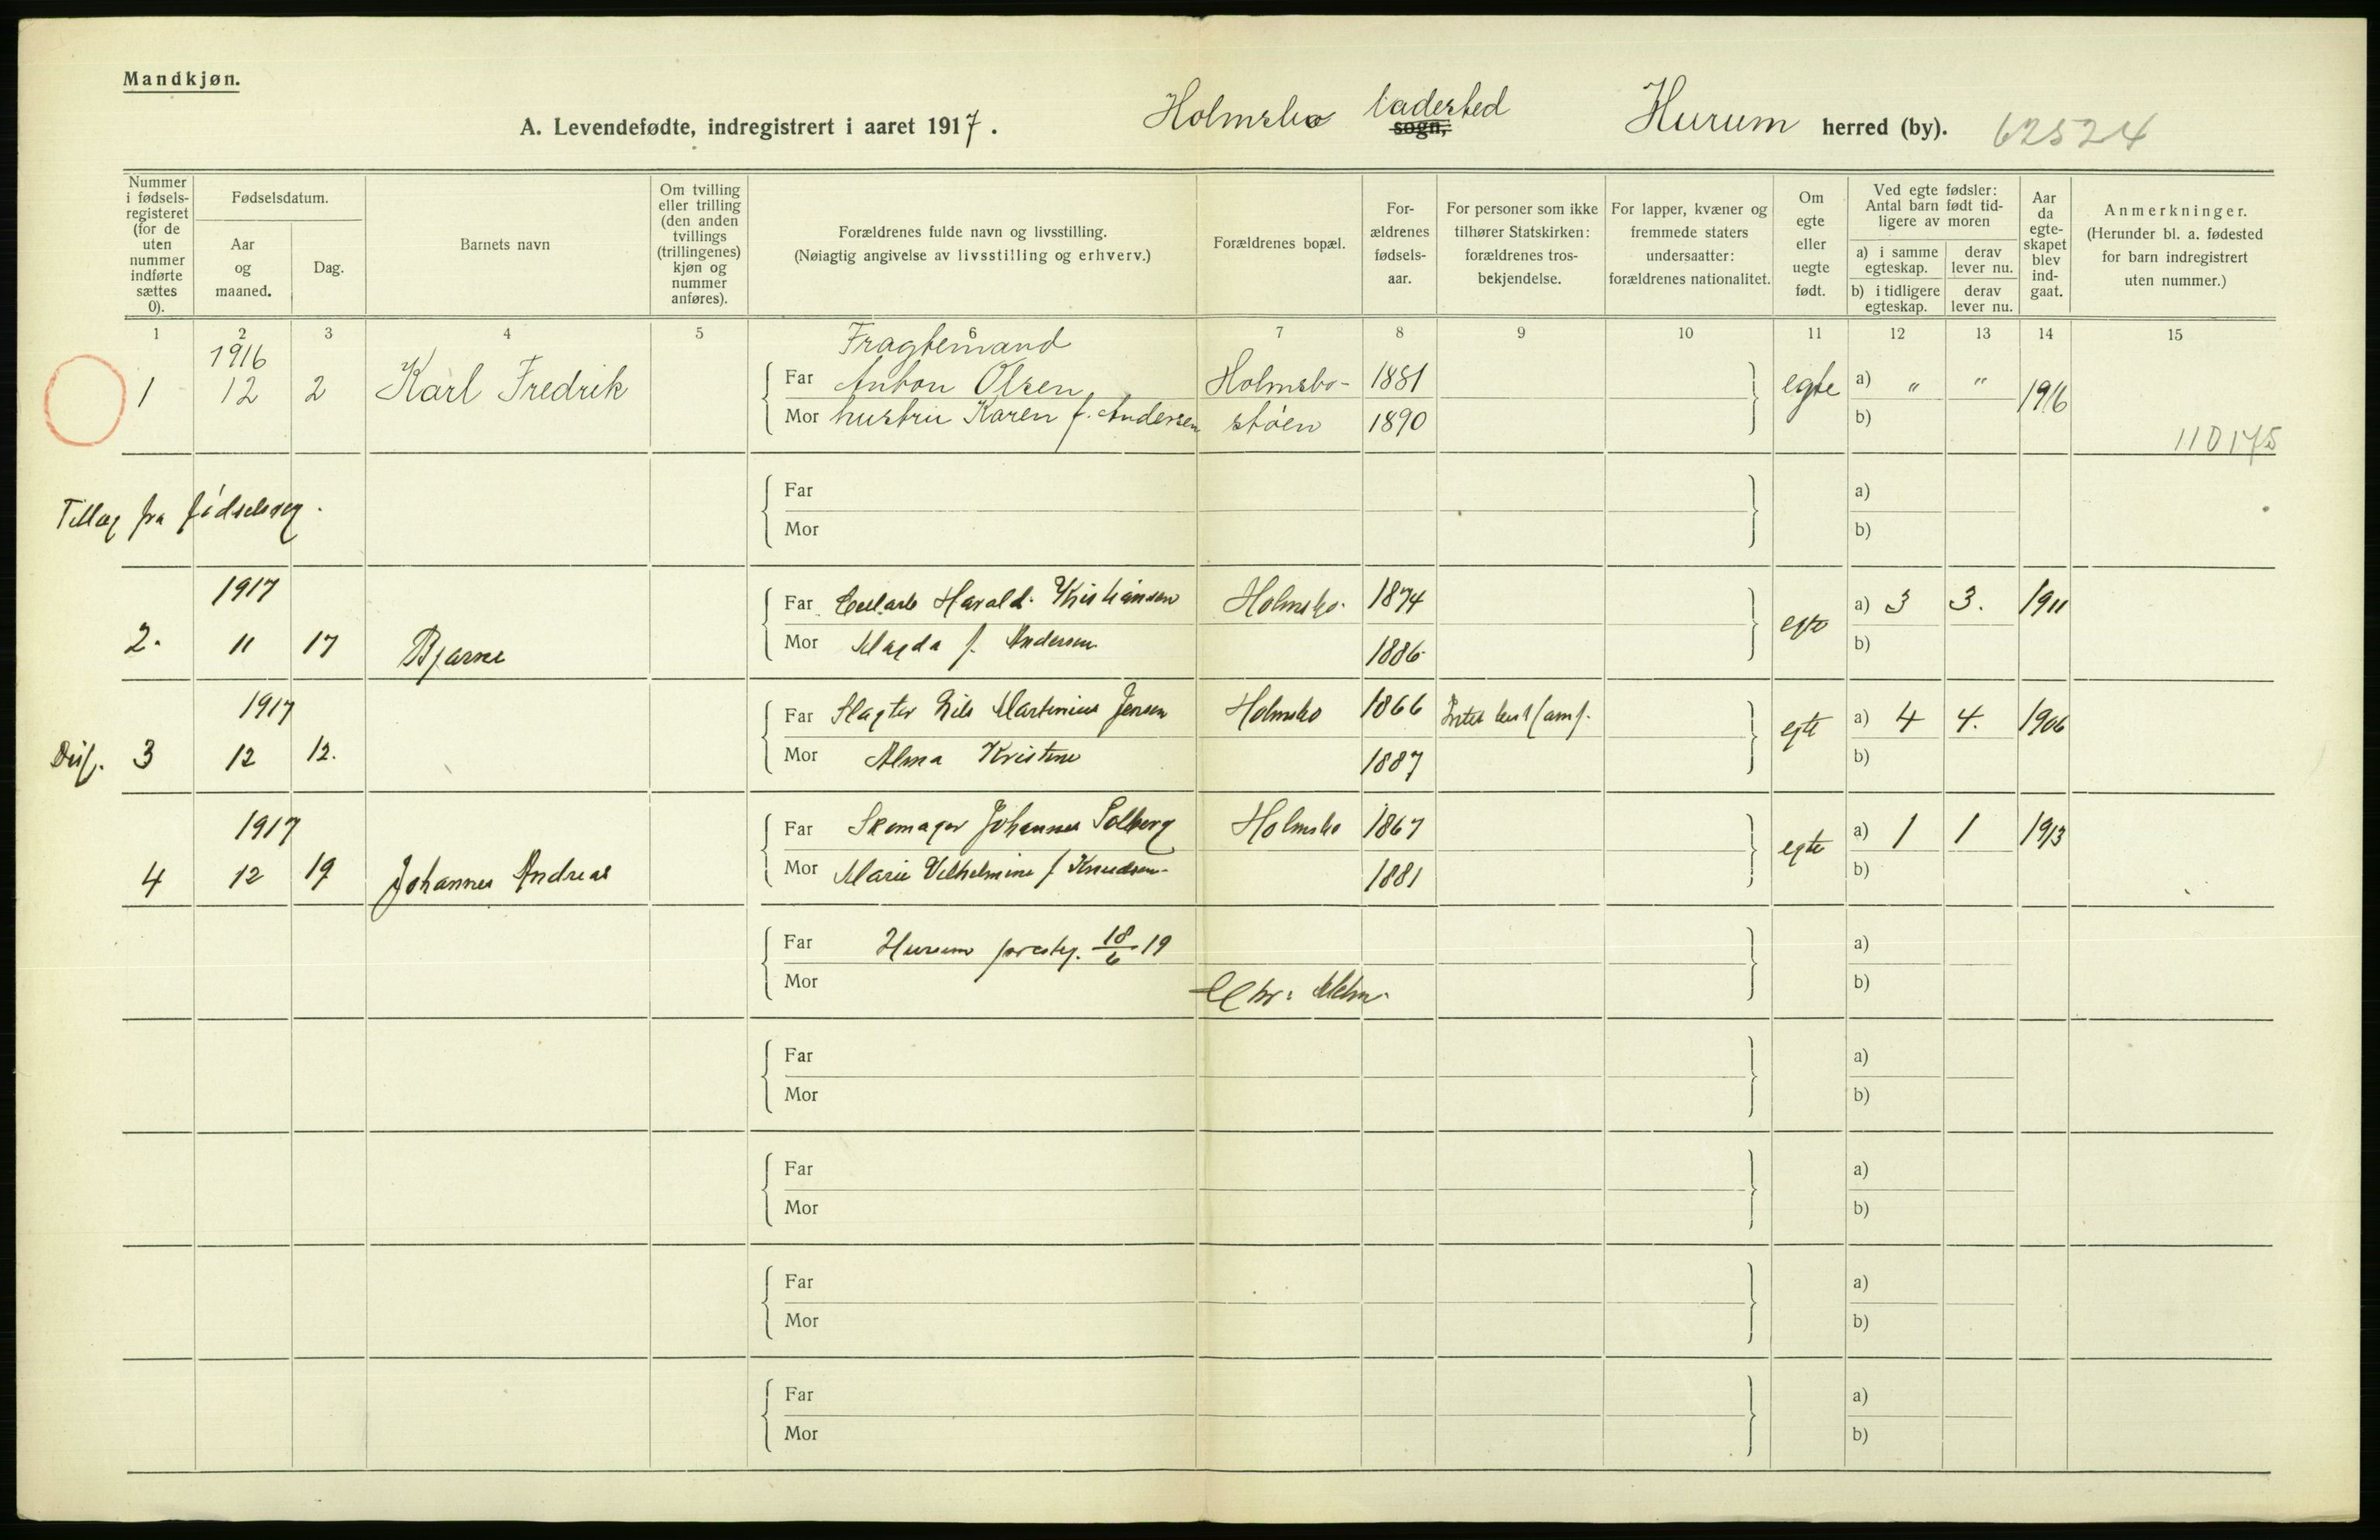 Mandkjøn.
A. Levendefødte, indregistrert i aaret 1917. Holmsbo ladested sogn, Hurum herred (by). 62524
Nummer i fødsels-registeret (for de uten nummer indførte sættes 0).
Fødselsdatum.
Aar og maaned.
Dag.
Barnets navn
Om tvilling eller trilling (den anden tvillings (trillingenes) kjøn og nummer anføres).
Forældrenes fulde navn og livsstilling.
(Nøiagtig angivelse av livsstilling og erhverv.)
Forældrenes bopæl.
For-ældrenes fødsels-aar.
For personer som ikke tilhører Statskirken: forældrenes tros-bekjendelse.
For lapper, kvæner og fremmede staters undersaatter: forældrenes nationalitet.
Om egte eller uegte født.
Ved egte fødsler: Antal barn født tid-ligere av moren
a) i samme egteskap.
derav lever nu.
b) i tidligere egteskap.
derav lever nu.
Aar da egte-skapet blev ind-gaat.
Anmerkninger.
(Herunder bl. a. fødested for barn indregistrert uten nummer.)
1 2 3 4 5 6 7 8 9 10 11 12 13 14 15
1916 Fragtemand
1 12 2 Karl Fredrik Far Anton Olsen, Holmsbo- 1881 egte a) " " 1916
Mor hustru Karen f. Andersen støen 1890 b)
110175
Tillæg fra fødselsreg.
Far a)
Mor b)
1917 Far Harald Kristiansen Holmsbo 1874 egte a) 3 3. 1911
2. 11 17 Bjarne Mor Magda f. Andersen 1886 b)
1917 Far Slagter Nils Martinius Jensen Holmsbo 1866 egte a) 4 4. 1906
3 12 12. Mor Alma Kristine 1887 b)
1917 Far Skomager Johannes Solberg Holmsbo 1867 egte a) 1 1 1913
4 12 19 Johannes Andreas Mor Marie Vilhelmine f Knudsen 1881 b)
Far Hurum presteg. 18/6 19 a)
Mor b)
Far a)
Mor b)
Far a)
Mor b)
Far a)
Mor b)
Far a)
Mor b)